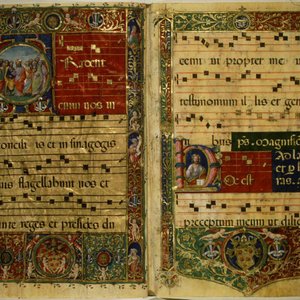 Radent
enim uos in
concilii is et in sinagogis
suis flagellabunt uos et
ante reges et presides du
cemi ni propter me in
testimonium il lis et gen
bus ps. Magnifica
Ad la
oc est
preceptum meum ut dili